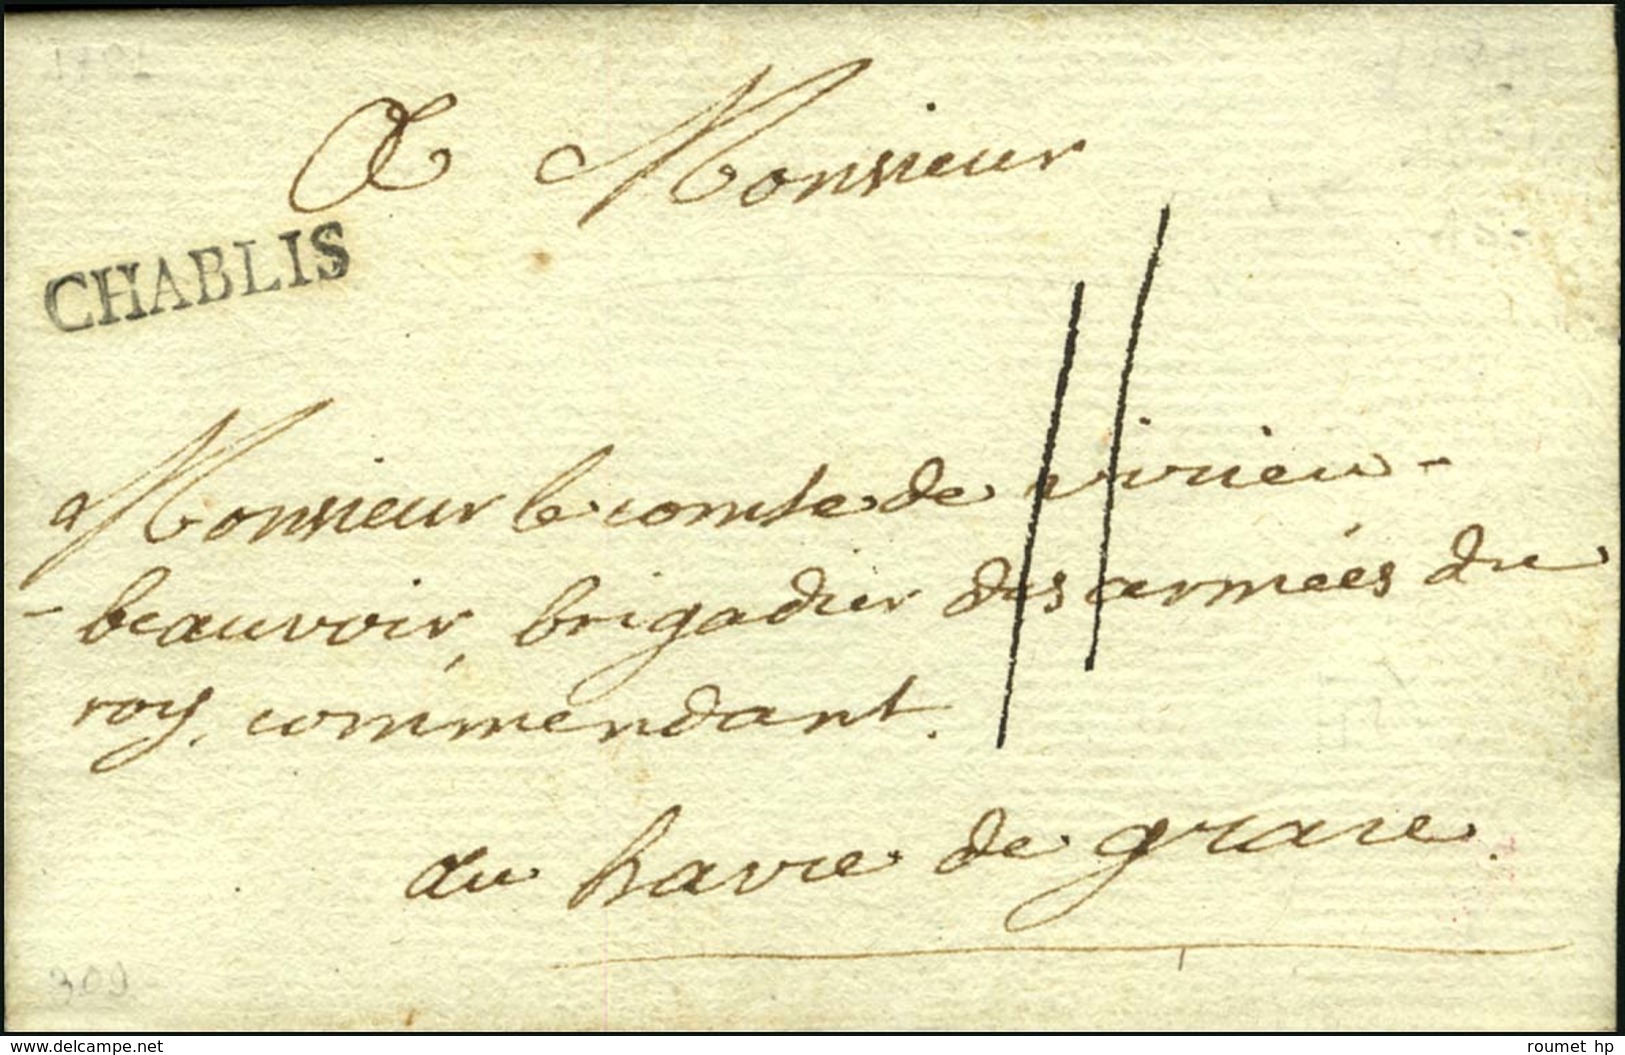 A Monsieur
CHABLIS
Monsieur le comte de virieu -
- beauvoir, brigadier des armées du
roy, commendant.
au havre de grace.
309
www.delcampe.net
roumet hp